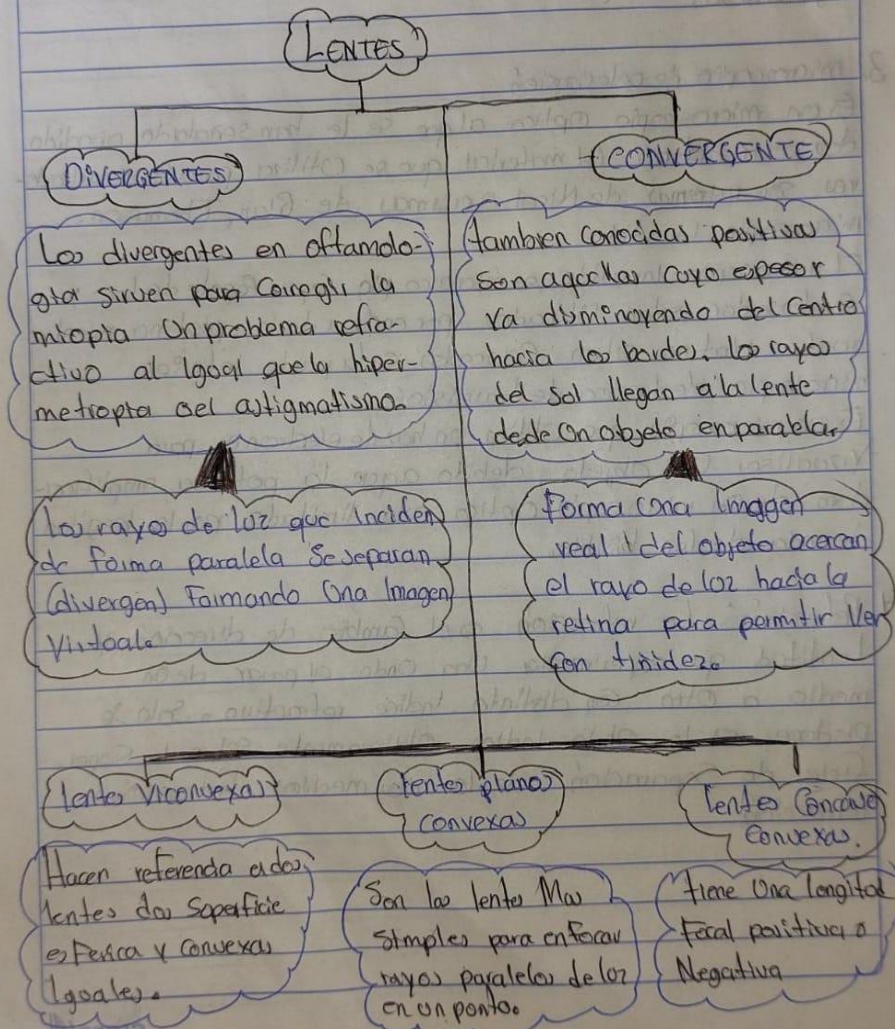 LENTES
DIVERGENTES
Los divergentes en oftamolo-
gia sirven para Corregir la
miopia Un problema refra-
ctivo al Igual que la hiper-
metropia o el astigmatismo.
los rayos de luz que inciden
de forma paralela Se separan
(divergen) Formando Una Imagen
Virtual.
CONVERGENTE
tambien conocidas positivas
Son aquellas cuyo espesor
va disminuyendo del Centro
hacia los bordes. los rayos
del Sol llegan a la lente
dede Un objeto en paralelas
Forma Una Imagen
real del objeto acercan
el rayo de luz hacia la
retina para permitir Ver
Con tinidez.
lentes Viconvexas
Hacen referencia a dos
lentes dos Superficie
esferica y convexas
Iguales.
lentes planos
convexas
Son las lentes Mas
Simples para enfocar
rayos paralelos de luz
en un punto.
lentes Concave
Convexas.
tiene Una longitud
Focal positiva o
Negativa